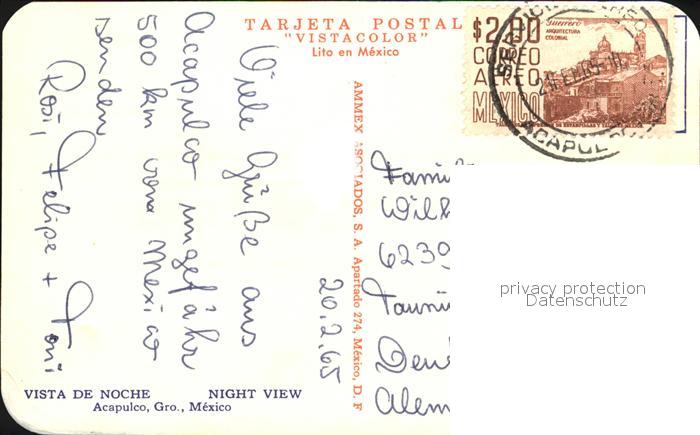 TARJETA POSTAL
"VISTACOLOR"
Lito en México
$2.00
Guerrero
ARQUITECTURA
COLONIAL
CORREO
AEREO
MEXICO
ACAPUL
20.2.65
Viele Grüße aus
Acapulco ungefähr
500 km von Mexico
senden
Rosi, Felipe + Toni
AMMEX ASOCIADOS, S. A. Apartado 274, México, D. F
Famil
Wilh
6239
Taunu
Deu
Alem
privacy protection
Datenschutz
VISTA DE NOCHE NIGHT VIEW
Acapulco, Gro., México